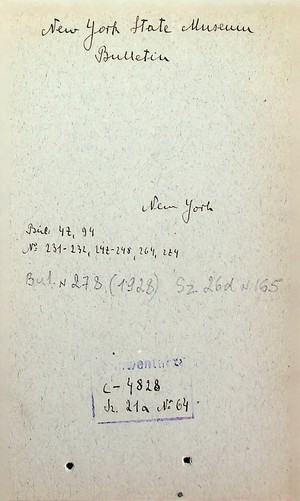 New York State Museum
Bulletin
New York
Bul. 47, 94
No 231-232, 247-248, 264, 274
Bul. N 278 (1928) Sz. 26d N 165
C-4828
Sz. 21a No 64